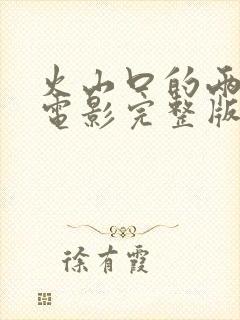 火山口的两
电影完整版
徐有霞